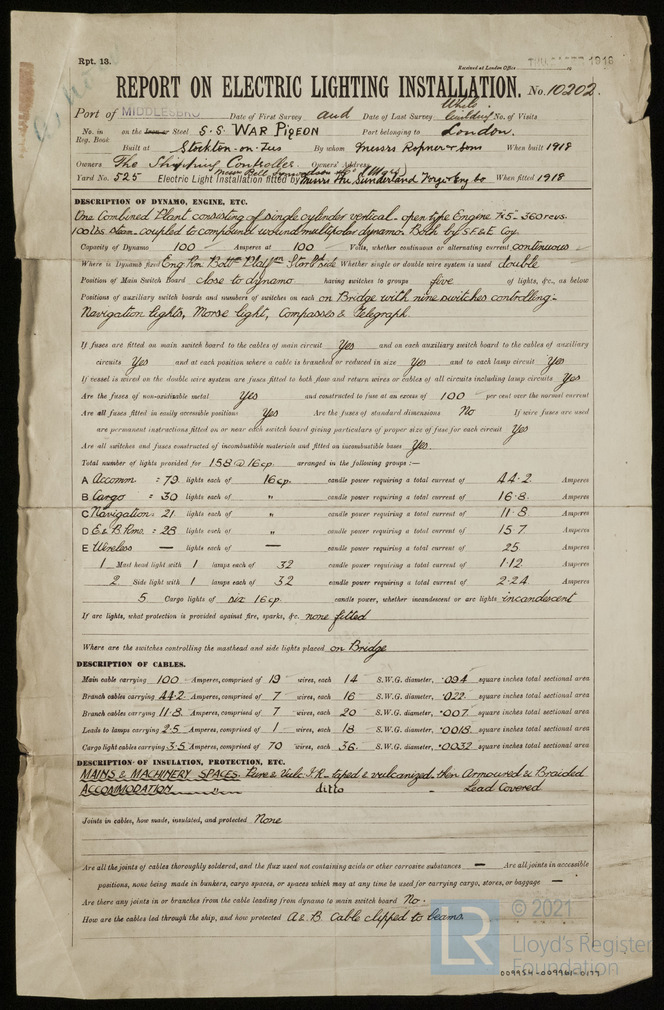 Rpt. 13.
Received at London Office
1918
REPORT ON ELECTRIC LIGHTING INSTALLATION. No. 10202.
Port of MIDDLESBRO Date of First Survey and Date of Last Survey While building No. of Visits
No. in Reg. Book on the Iron or Steel S.S. WAR PIGEON Port belonging to London.
Built at Stockton-on-Tees By whom Messrs Ropner & Sons When built 1918
Owners The Shipping Controller. Owners' Address
Yard No. 525 Electric Light Installation fitted by Messrs The Sunderland Forge & Eng Co When fitted 1918
DESCRIPTION OF DYNAMO, ENGINE, ETC.
One Combined Plant consisting of single cylinder vertical - open type Engine 7x5 - 360 revs.
100 lbs steam - coupled to compound wound multipolar dynamo. Both by S.F. & E Coy.
Capacity of Dynamo 100 Amperes at 100 Volts, whether continuous or alternating current continuous
Where is Dynamo fixed Eng Rm Bottm Platfm Starbd side Whether single or double wire system is used double
Position of Main Switch Board close to dynamo having switches to groups five of lights, &c., as below
Positions of auxiliary switch boards and numbers of switches on each on Bridge with nine switches controlling:-
Navigation lights, Morse light, Compasses & Telegraph.
If fuses are fitted on main switch board to the cables of main circuit Yes and on each auxiliary switch board to the cables of auxiliary
circuits Yes and at each position where a cable is branched or reduced in size Yes and to each lamp circuit Yes
If vessel is wired on the double wire system are fuses fitted to both flow and return wires or cables of all circuits including lamp circuits Yes
Are the fuses of non-oxidizable metal Yes and constructed to fuse at an excess of 100 per cent over the normal current
Are all fuses fitted in easily accessible positions Yes Are the fuses of standard dimensions No If wire fuses are used
are permanent instructions fitted on or near each switch board giving particulars of proper size of fuse for each circuit Yes
Are all switches and fuses constructed of incombustible materials and fitted on incombustible bases Yes.
Total number of lights provided for 158 @ 16 cp. arranged in the following groups :—
A Accomm = 79 lights each of 16 cp. candle power requiring a total current of 44.2 Amperes
B Cargo = 30 lights each of " candle power requiring a total current of 16.8 Amperes
C Navigation = 21 lights each of " candle power requiring a total current of 11.8 Amperes
D E & B. Rms. = 28 lights each of " candle power requiring a total current of 15.7 Amperes
E Wireless — lights each of — candle power requiring a total current of 25 Amperes
1 Mast head light with 1 lamps each of 32 candle power requiring a total current of 1.12 Amperes
2 Side light with 1 lamps each of 32 candle power requiring a total current of 2.24 Amperes
5 Cargo lights of six 16 cp candle power, whether incandescent or arc lights incandescent
If arc lights, what protection is provided against fire, sparks, &c. none fitted
Where are the switches controlling the masthead and side lights placed on Bridge
DESCRIPTION OF CABLES.
Main cable carrying 100 Amperes, comprised of 19 wires, each 14 S.W.G. diameter, .094 square inches total sectional area
Branch cables carrying 44.2 Amperes, comprised of 7 wires, each 16 S.W.G. diameter, .022 square inches total sectional area
Branch cables carrying 11.8 Amperes, comprised of 7 wires, each 20 S.W.G. diameter, .007 square inches total sectional area
Leads to lamps carrying 2.5 Amperes, comprised of 1 wires, each 18 S.W.G. diameter, .0018 square inches total sectional area
Cargo light cables carrying 3.5 Amperes, comprised of 70 wires, each 36 S.W.G. diameter, .0032 square inches total sectional area
DESCRIPTION OF INSULATION, PROTECTION, ETC.
MAINS & MACHINERY SPACES. Pure & Vulc. I.R. taped & vulcanized, then Armoured & Braided
ACCOMMODATION ditto - Lead Covered
Joints in cables, how made, insulated, and protected None
Are all the joints of cables thoroughly soldered, and the flux used not containing acids or other corrosive substances — Are all joints in accessible
positions, none being made in bunkers, cargo spaces, or spaces which may at any time be used for carrying cargo, stores, or baggage —
Are there any joints in or branches from the cable leading from dynamo to main switch board No.
How are the cables led through the ship, and how protected A & B Cable clipped to beams.
LR © 2021
Lloyd's Register
Foundation
009954-009961-0177